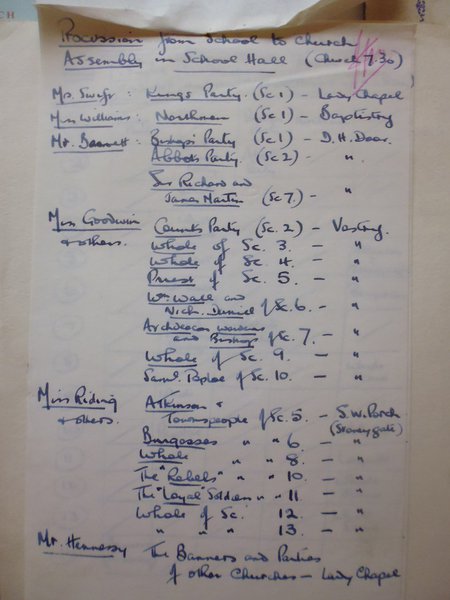 Procession from School to Church
Assembly in School Hall (Church 7.30)
Mr. Swift: Kings Party (Sc 1) - Lady Chapel
Miss Williams: Northmen (Sc 1) - Baptistry
Mr. Bassett: Bishops Party (Sc 1) - D.H. Door.
Abbots Party (Sc 2) - "
Sir Richard and
James Martin (Sc 7.) - "
Miss Goodwin Counts Party (Sc. 2) - Vestry.
& others. Whole of Sc. 3. - "
Whole of Sc. 4. - "
Priest of Sc. 5. - "
Wm Wall and
Nich. Daniel of Sc. 6. - "
Archdeacon Wardens
and Bishop of Sc. 7. - "
Whole of Sc. 9. - "
Saml. Peploe of Sc. 10. - "
Miss Riding Atkinson &
& others. Townspeople of Sc. 5 - S.W. Porch
(Stoneygate)
Burgesses " " 6 - "
Whole " " 8. - "
The "Rebels" " " 10. - "
The "Loyal" Soldiers " " 11 - "
Whole of Sc. 12. - "
" " " 13. - "
Mr. Hennessy The Banners and Parties
of other Churches - Lady Chapel